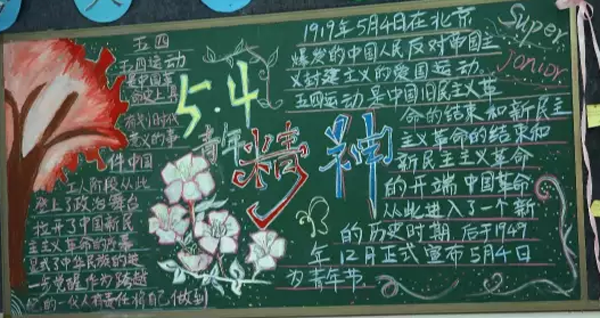 五四
五四运动
是中国革
命史上具
有划时代
意义的事
件中国
工人阶段从此
登上了政治舞台
拉开了中国新民
主主义革命的序幕
显示了中华民族的进
一步觉醒作为跨越
纪的一代人有责任将自己做到
5.4
青年
精神
1919年5月4日在北京
爆发的中国人民反对帝国主
义封建主义的爱国运动
五四运动是中国旧民主义革
命的结束和新民主
主义革命的结束和
新民主主义革命
的开端中国革命
从此进入了一个新
的历史时期后于1949
年12月正式宣布5月4日
为青年节
Super
Junior